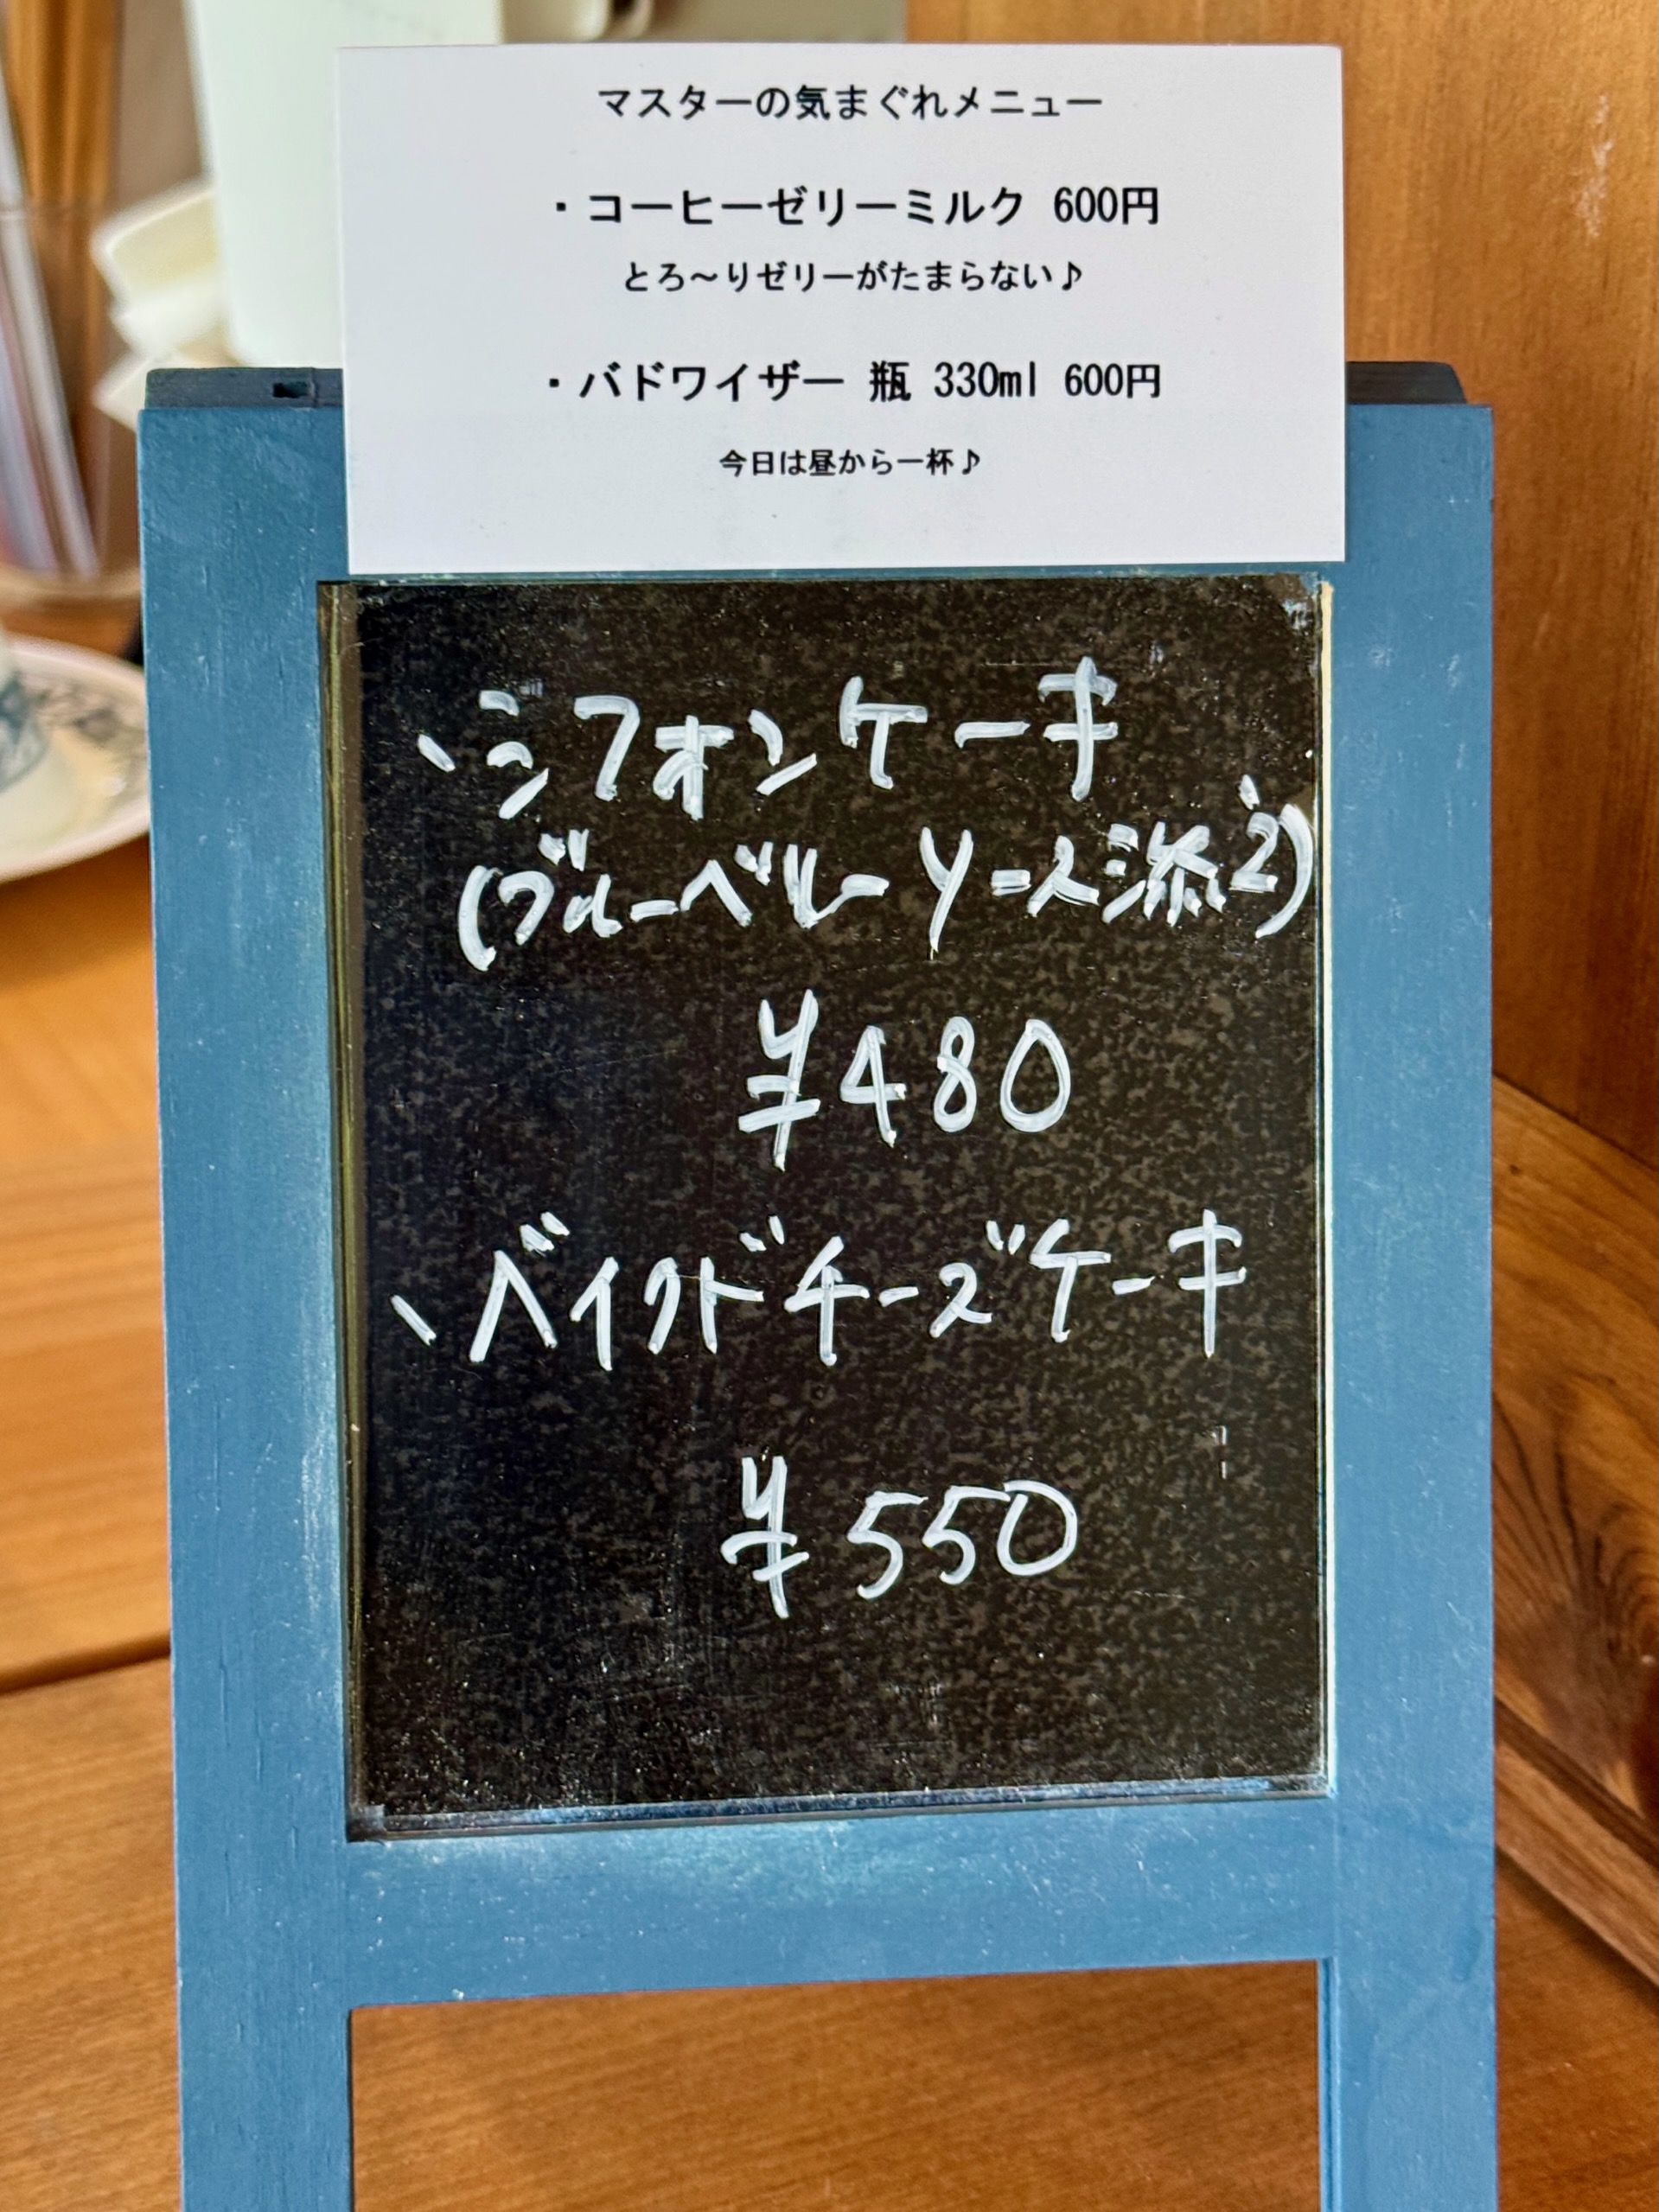 マスターの気まぐれメニュー
・コーヒーゼリーミルク 600円
とろ～りゼリーがたまらない♪
・バドワイザー 瓶 330ml 600円
今日は昼から一杯♪
、シフォンケーキ
(ブルーベリーソース添え)
¥480
、ベイクドチーズケーキ
¥550